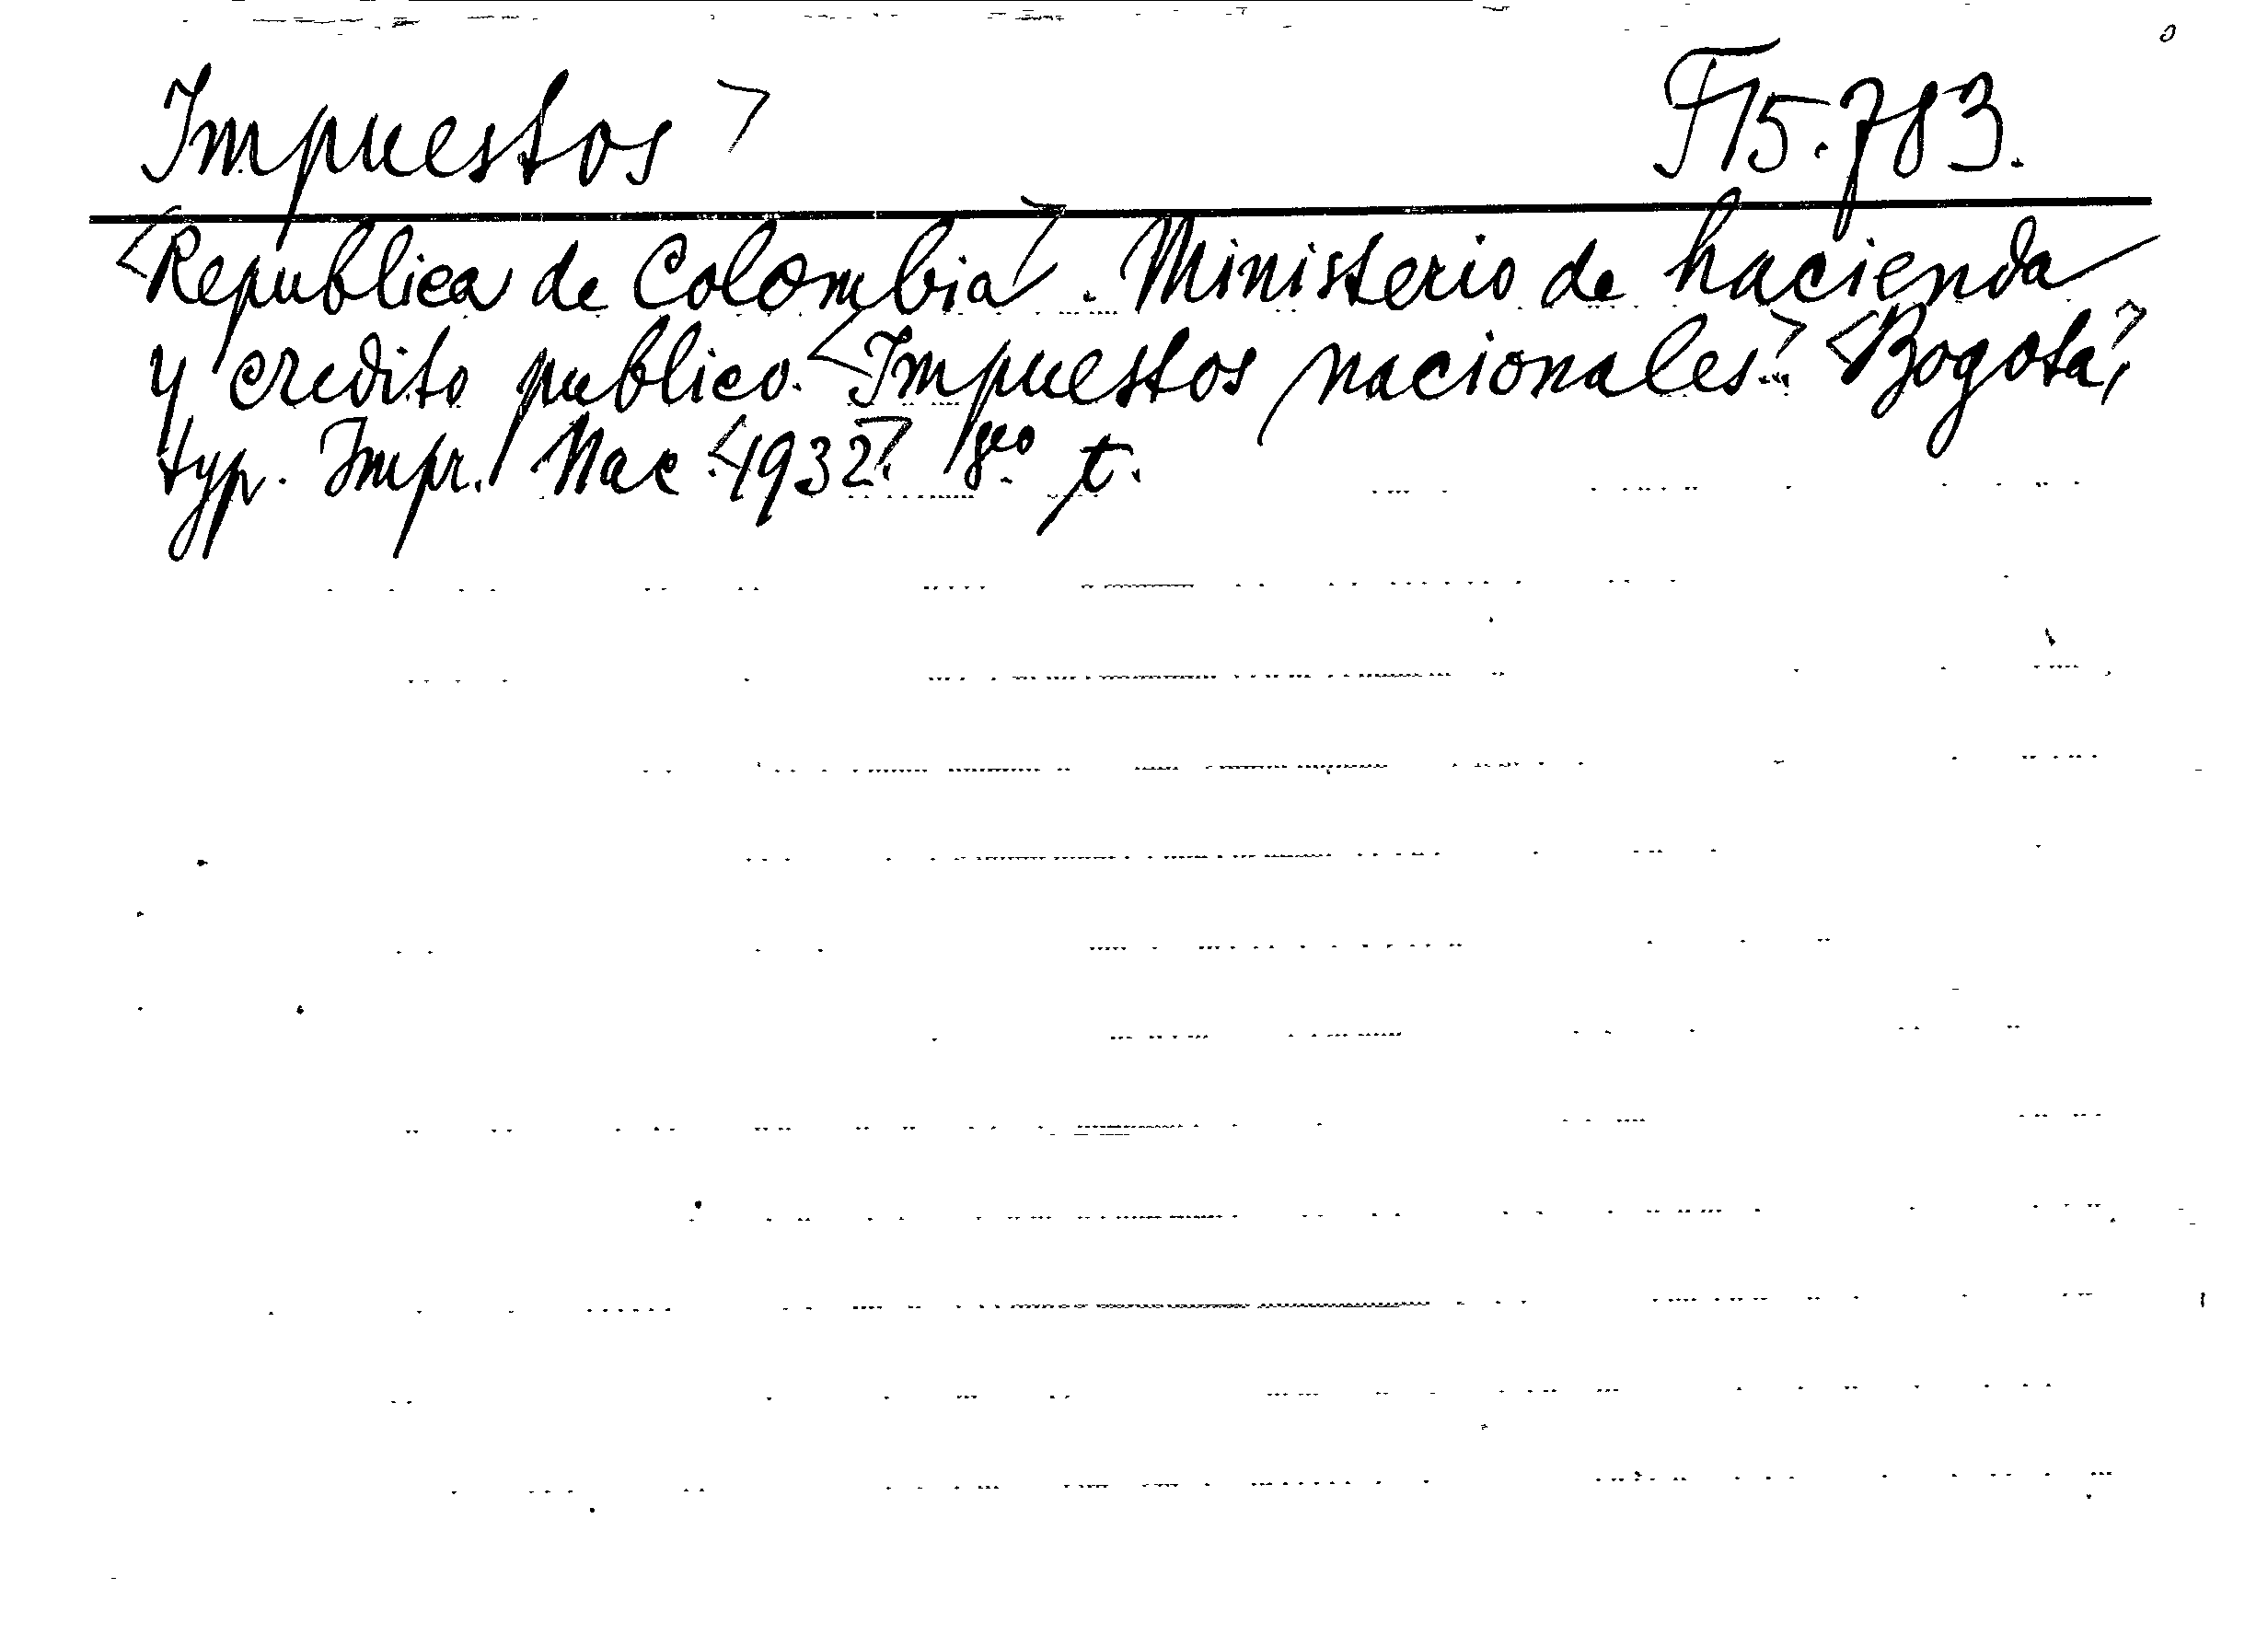 Impuestos> F15.783.
<Republica de Colombia>. Ministerio de hacienda
y credito publico. <Impuestos nacionales>. <Bogotá>,
typ. Impr. Nac <1932>. 8eo t.